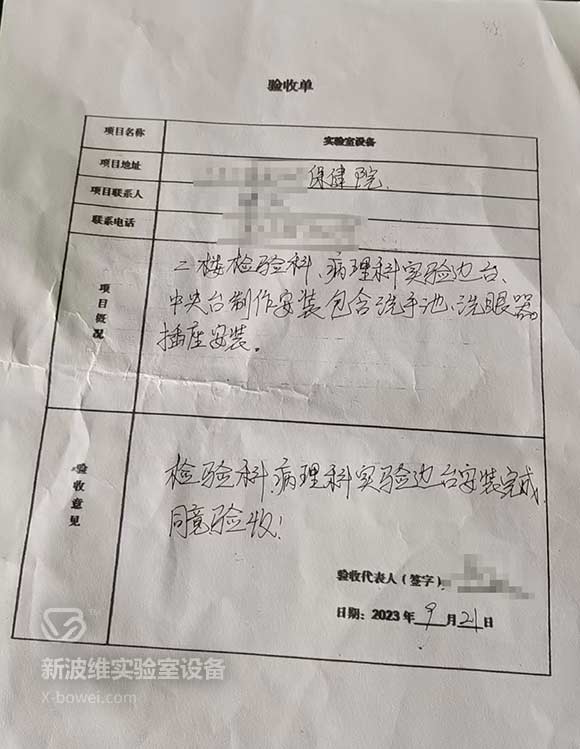 验收单
项目名称 实验室设备
项目地址 保健院
项目联系人
联系电话
项目概况
二楼检验科、病理科实验边台、
中央台制作安装包含洗手池、洗眼器
插座安装。
验收意见
检验科病理科实验边台安装完成
同意验收!
验收代表人(签字)
日期:2023年9月21日
新波维实验室设备
X-bowei.com